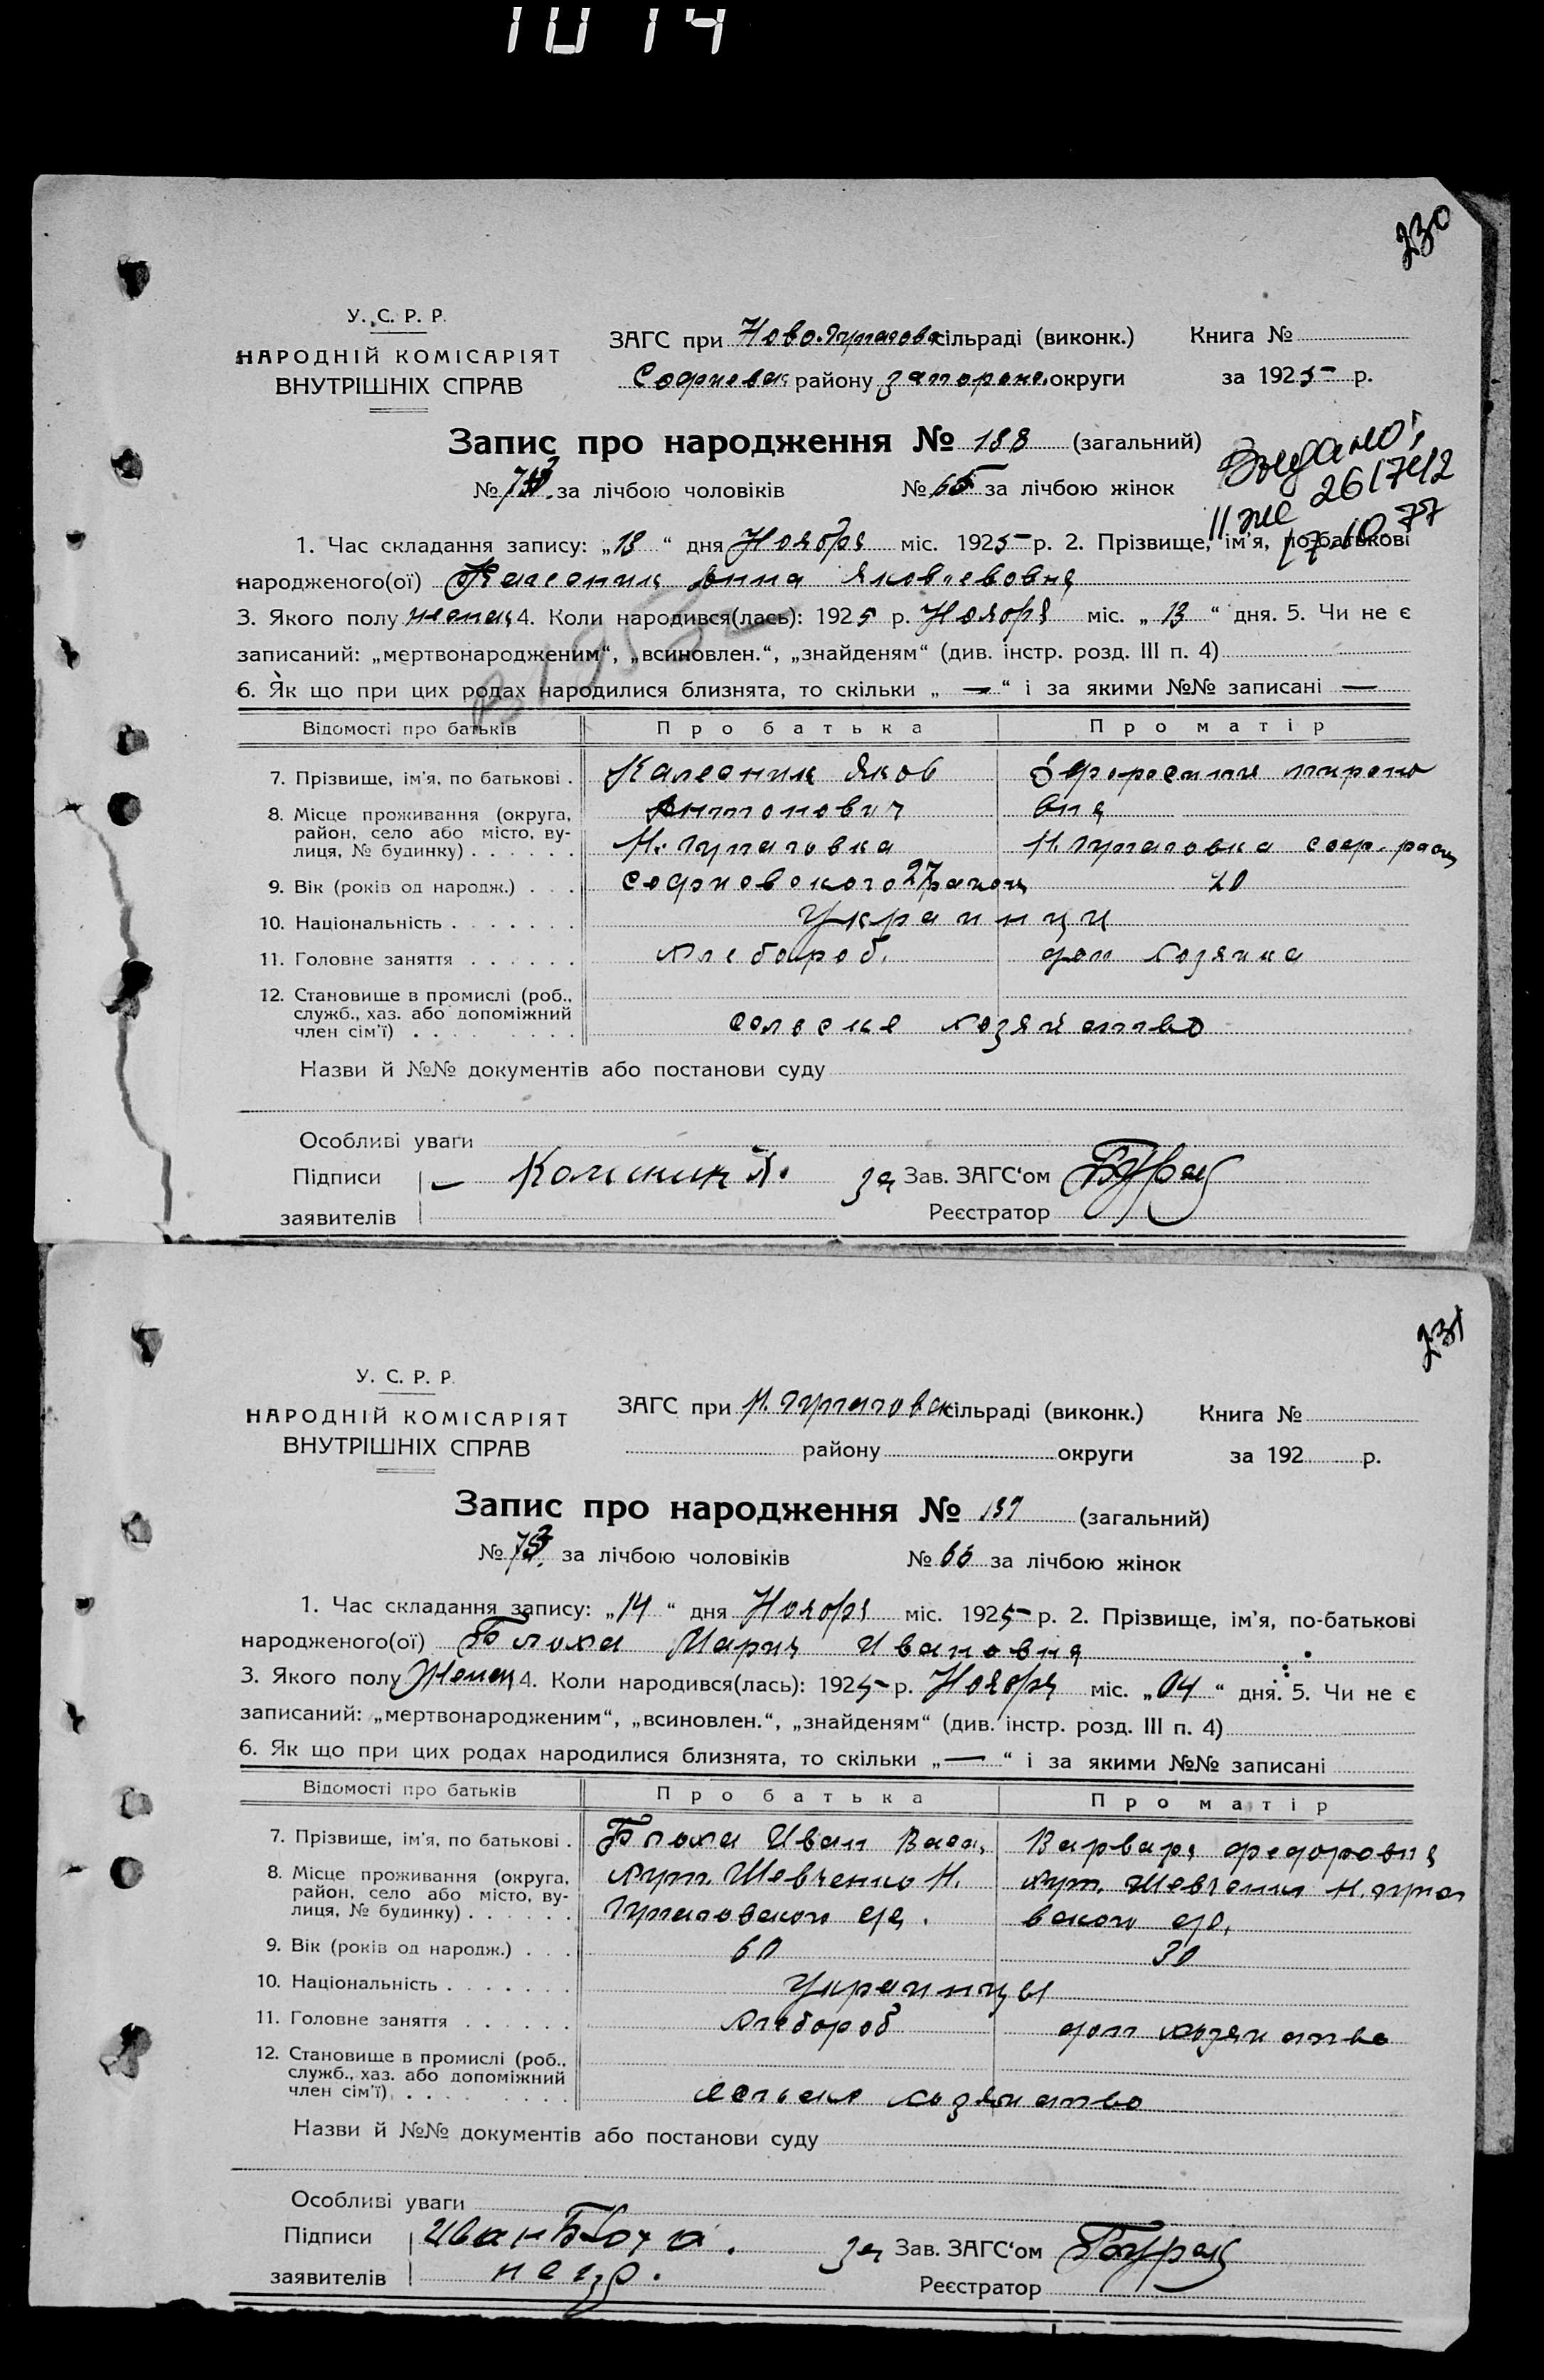 1014
230
У. С. Р. Р.
НАРОДНІЙ КОМІСАРІЯТ
ВНУТРІШНІХ СПРАВ
ЗАГС при Ново. сільраді (виконк.) Книга №
району округи за 1925 р.
Запис про народження № 188 (загальний)
№ за лічбою чоловіків № 65 за лічбою жінок
Выдано:
II же 261742
17.10.77
1. Час складання запису: „13“ дня Ноября міс. 1925 р. 2. Прізвище, ім'я, по-батькові
народженого(ої) Калесник Анна Яковлевовна
3. Якого полу 4. Коли народився(лась): 1925 р. Ноября міс. „13“ дня. 5. Чи не є
записаний: „мертвонародженим“, „всиновлен.“, „знайденям“ (див. інстр. розд. III п. 4)
6. Як що при цих родах народилися близнята, то скільки „—“ і за якими №№ записані —
Відомості про батьків Про батька Про матір
7. Прізвище, ім'я, по батькові . Калесник Яков
8. Місце проживання (округа, Антонович вна
район, село або місто, ву-
лиця, № будинку) . . . . . .
9. Вік (років од народж.) . . . 27 20
10. Національність . . . . . . . Украинци
11. Головне заняття . . . . . . Хлебороб. дом хозяика
12. Становище в промислі (роб.,
служб., хаз. або допоміжний
член сім'ї) . . . . . . . . . хозяйство
Назви й №№ документів або постанови суду
Особливі уваги
Підписи за Зав. ЗАГС'ом
заявителів Реєстратор
231
У. С. Р. Р.
НАРОДНІЙ КОМІСАРІЯТ
ВНУТРІШНІХ СПРАВ
ЗАГС при Н. сільраді (виконк.) Книга №
району округи за 192 р.
Запис про народження № (загальний)
№ за лічбою чоловіків № 66 за лічбою жінок
1. Час складання запису: „14“ дня Ноября міс. 1925 р. 2. Прізвище, ім'я, по-батькові
народженого(ої) Блоха Мария Ивановна
3. Якого полу 4. Коли народився(лась): 1925 р. Ноября міс. „04“ дня. 5. Чи не є
записаний: „мертвонародженим“, „всиновлен.“, „знайденям“ (див. інстр. розд. III п. 4)
6. Як що при цих родах народилися близнята, то скільки „—“ і за якими №№ записані
Відомості про батьків Про батька Про матір
7. Прізвище, ім'я, по батькові . Блоха Иван Варвара Федоровна
8. Місце проживання (округа, хут. Шевченко Н. хут. Шевченко Н.
район, село або місто, ву-
лиця, № будинку) . . . . . .
9. Вік (років од народж.) . . . 60 30
10. Національність . . . . . . . Украинцы
11. Головне заняття . . . . . . Хлебороб дом хозяиство
12. Становище в промислі (роб.,
служб., хаз. або допоміжний
член сім'ї) . . . . . . . . . хозяиство
Назви й №№ документів або постанови суду
Особливі уваги
Підписи Иван Блоха. за Зав. ЗАГС'ом
заявителів Реєстратор